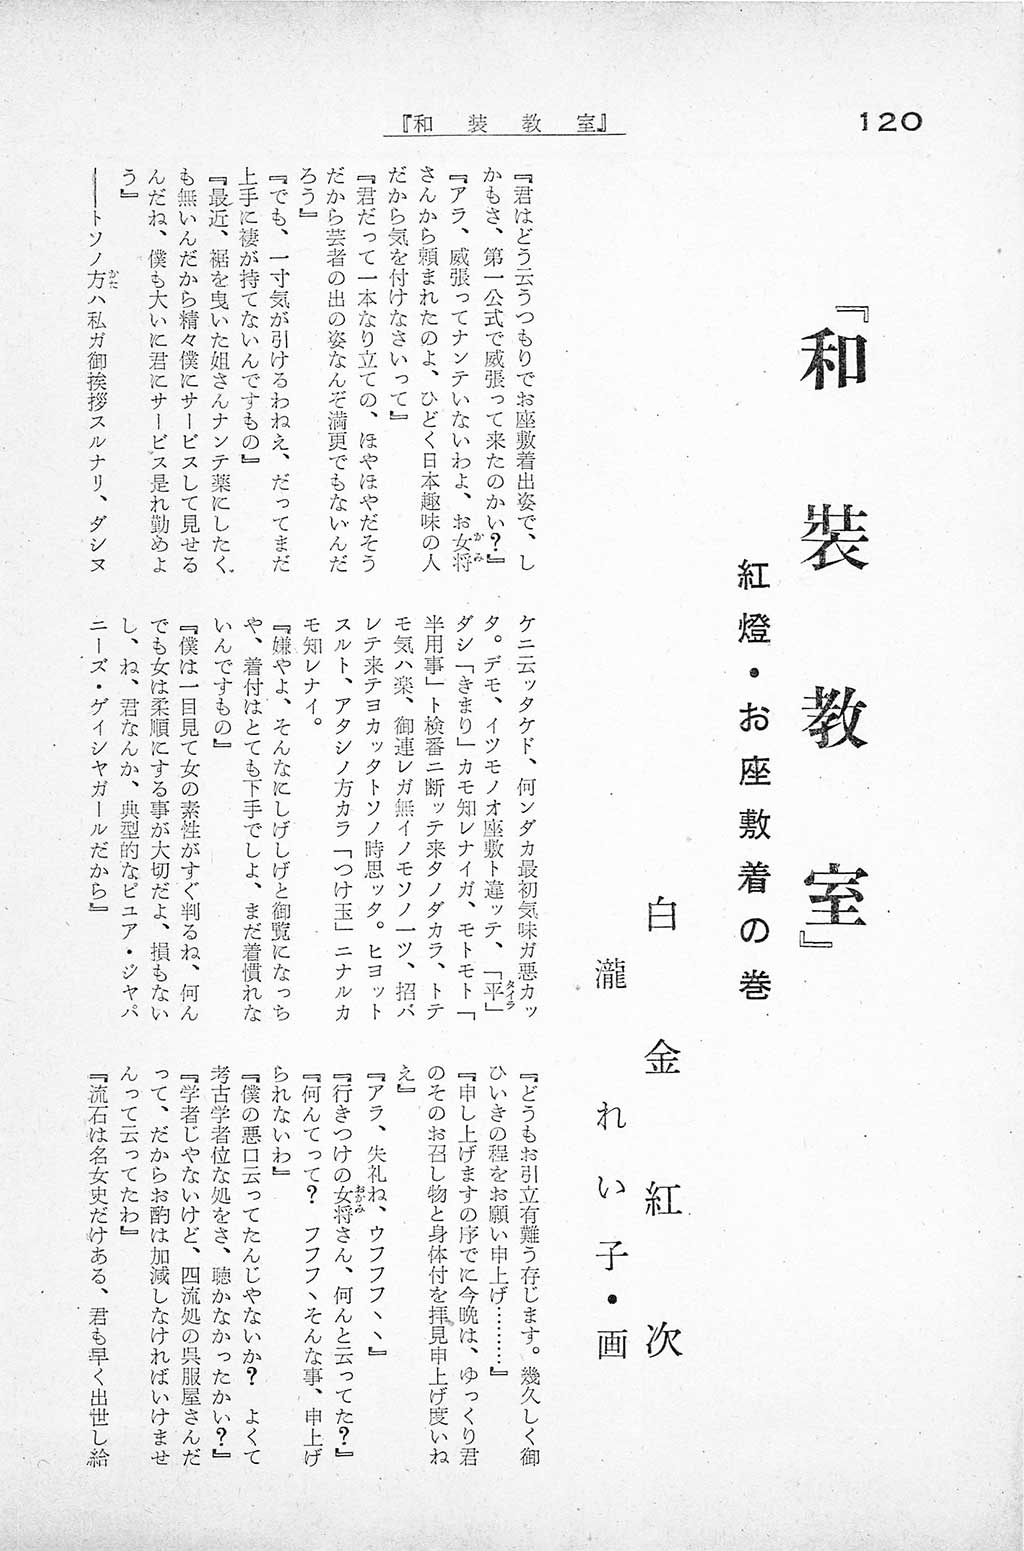 120
『和装教室』
『和装教室』
紅燈・お座敷着の巻
白金紅次
瀧れい子・画
『君はどう云うつもりでお座敷着出姿で、し
かもさ、第一公式で威張って来たのかい？』
『アラ、威張ってナンテいないわよ、お女将
さんから頼まれたのよ、ひどく日本趣味の人
だから気を付けなさいって』
『君だって一本なり立ての、ほやほやだそう
だから芸者の出の姿なんぞ満更でもないんだ
ろう』
『でも、一寸気が引けるわねえ、だってまだ
上手に褄が持てないんですもの』
『最近、裾を曳いた姐さんナンテ薬にしたく
も無いんだから精々僕にサービスして見せる
んだね、僕も大いに君にサービス是れ勤めよ
う』
――トソノ方ハ私ガ御挨拶スルナリ、ダシヌ
ケニ云ッタケド、何ンダカ最初気味ガ悪カッ
タ。デモ、イツモノオ座敷ト違ッテ、「平」
ダシ「きまり」カモ知レナイガ、モトモト「
半用事」ト検番ニ断ッテ来タノダカラ、トテ
モ気ハ楽、御連レガ無イノモソノ一ツ、招バ
レテ来テヨカッタトソノ時思ッタ。ヒヨット
スルト、アタシノ方カラ「つけ玉」ニナルカ
モ知レナイ。
『嫌やよ、そんなにしげしげと御覧になっち
や、着付はとても下手でしよ、まだ着慣れな
いんですもの』
『僕は一目見て女の素性がすぐ判るね、何ん
でも女は柔順にする事が大切だよ、損もない
し、ね、君なんか、典型的なピユア・ジャパ
ニーズ・ゲイシヤガールだから』
『どうもお引立有難う存じます。幾久しく御
ひいきの程をお願い申上げ………』
『申し上げますの序でに今晩は、ゆっくり君
のそのお召し物と身体付を拝見申上げ度いね
え』
『アラ、失礼ね、ウフフフヽヽ』
『行きつけの女将さん、何んと云ってた？』
『何んてって？　フフフヽそんな事、申上げ
られないわ』
『僕の悪口云ってたんじゃないか？　よくて
考古学者位な処をさ、聴かなかったかい？』
『学者じやないけど、四流処の呉服屋さんだ
って、だからお酌は加減しなければいけませ
んって云ってたわ』
『流石は名女史だけある、君も早く出世し給